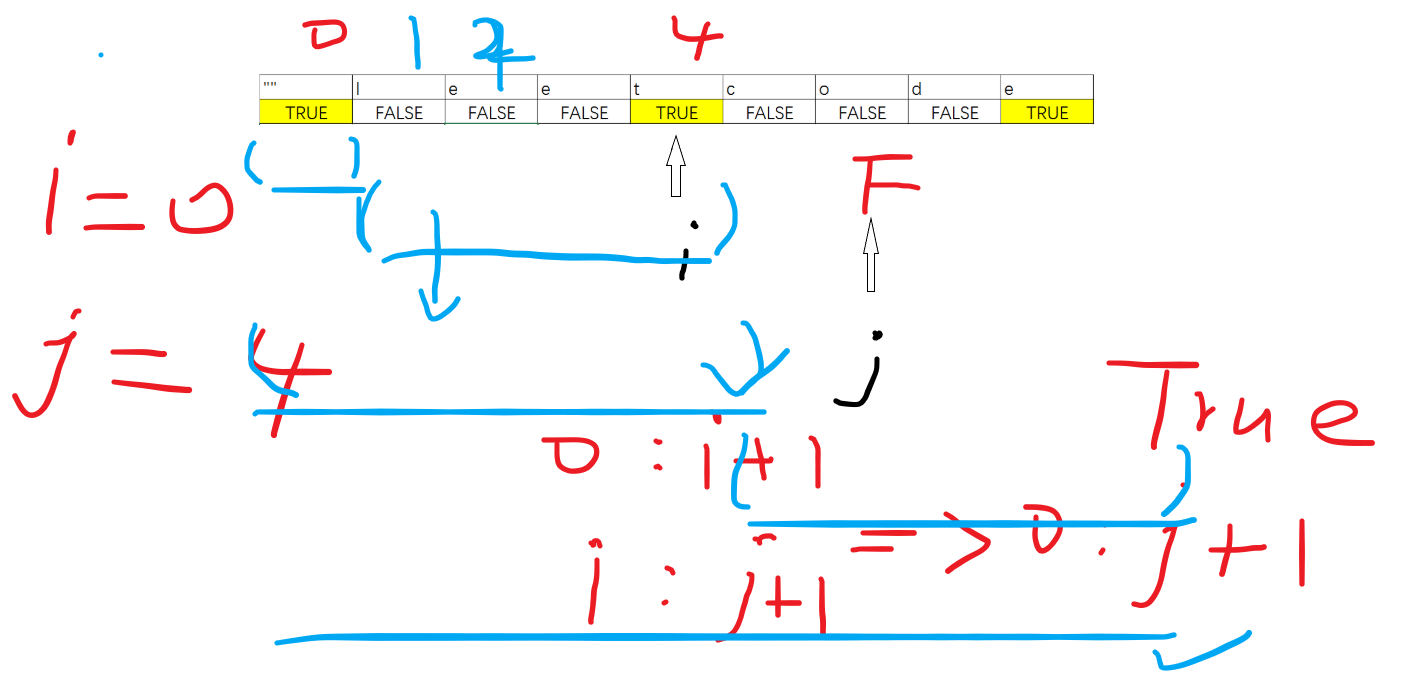 0 1 2 4
"" l e e t c o d e
TRUE FALSE FALSE FALSE TRUE FALSE FALSE FALSE TRUE
i = 0
F
i
j = 4
j
True
0 : i+1
i : j+1 => 0 : j+1